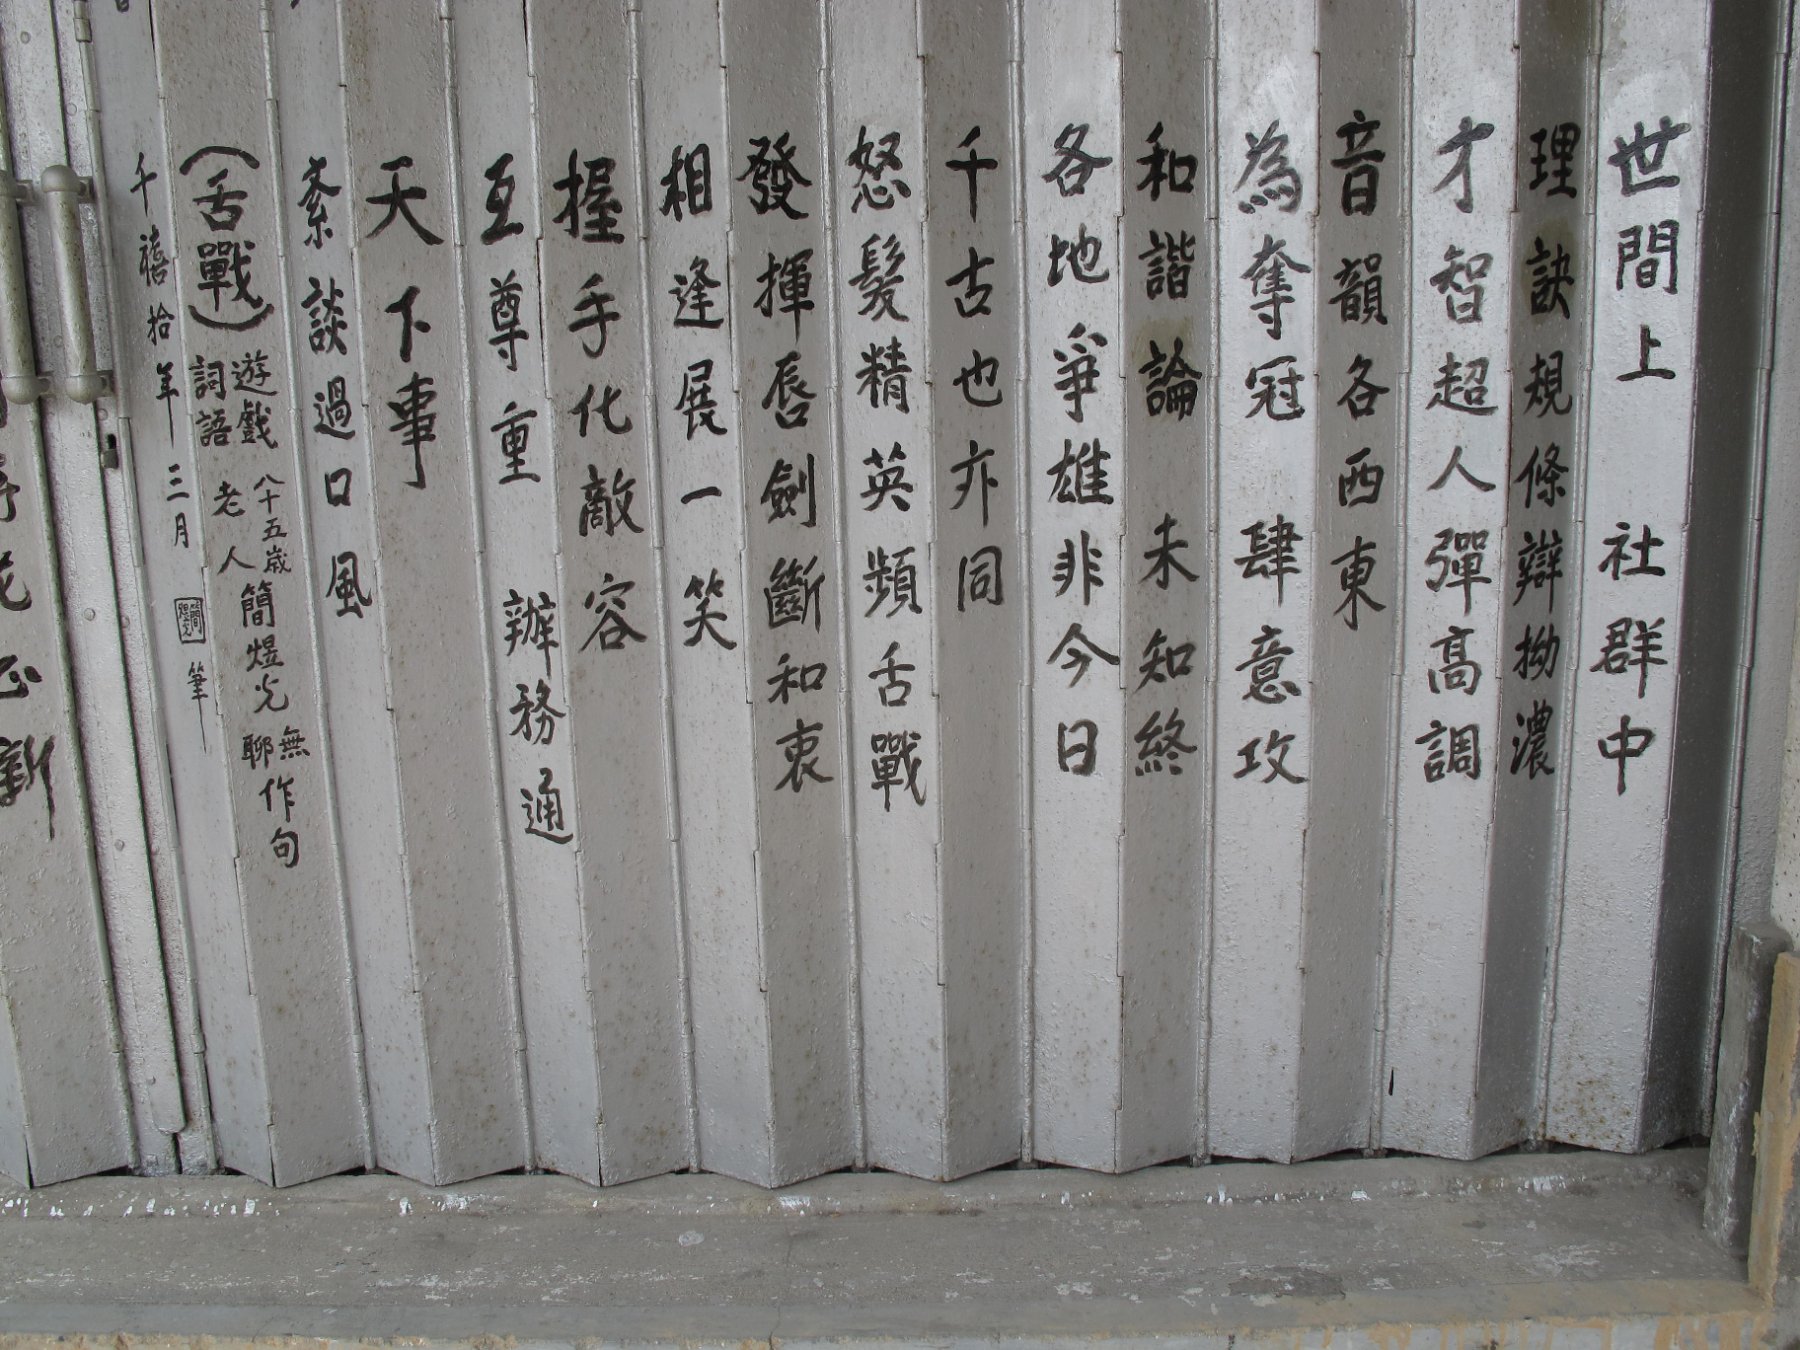 世間上 社群中
理訣規條辯拗濃
才智超人彈高調
音韻各西東
為奪冠 肆意攻
和諧論 未知終
各地爭雄非今日
千古也亦同
怒髮精英頻舌戰
發揮唇劍斷和衷
相逢展一笑
握手化敵容
互尊重 辦務通
天下事
紊談過口風
(舌戰) 遊戲詞語 八十五歲老人 簡煜光 無聊作句
千禧拾年 三月 簡煜光 筆